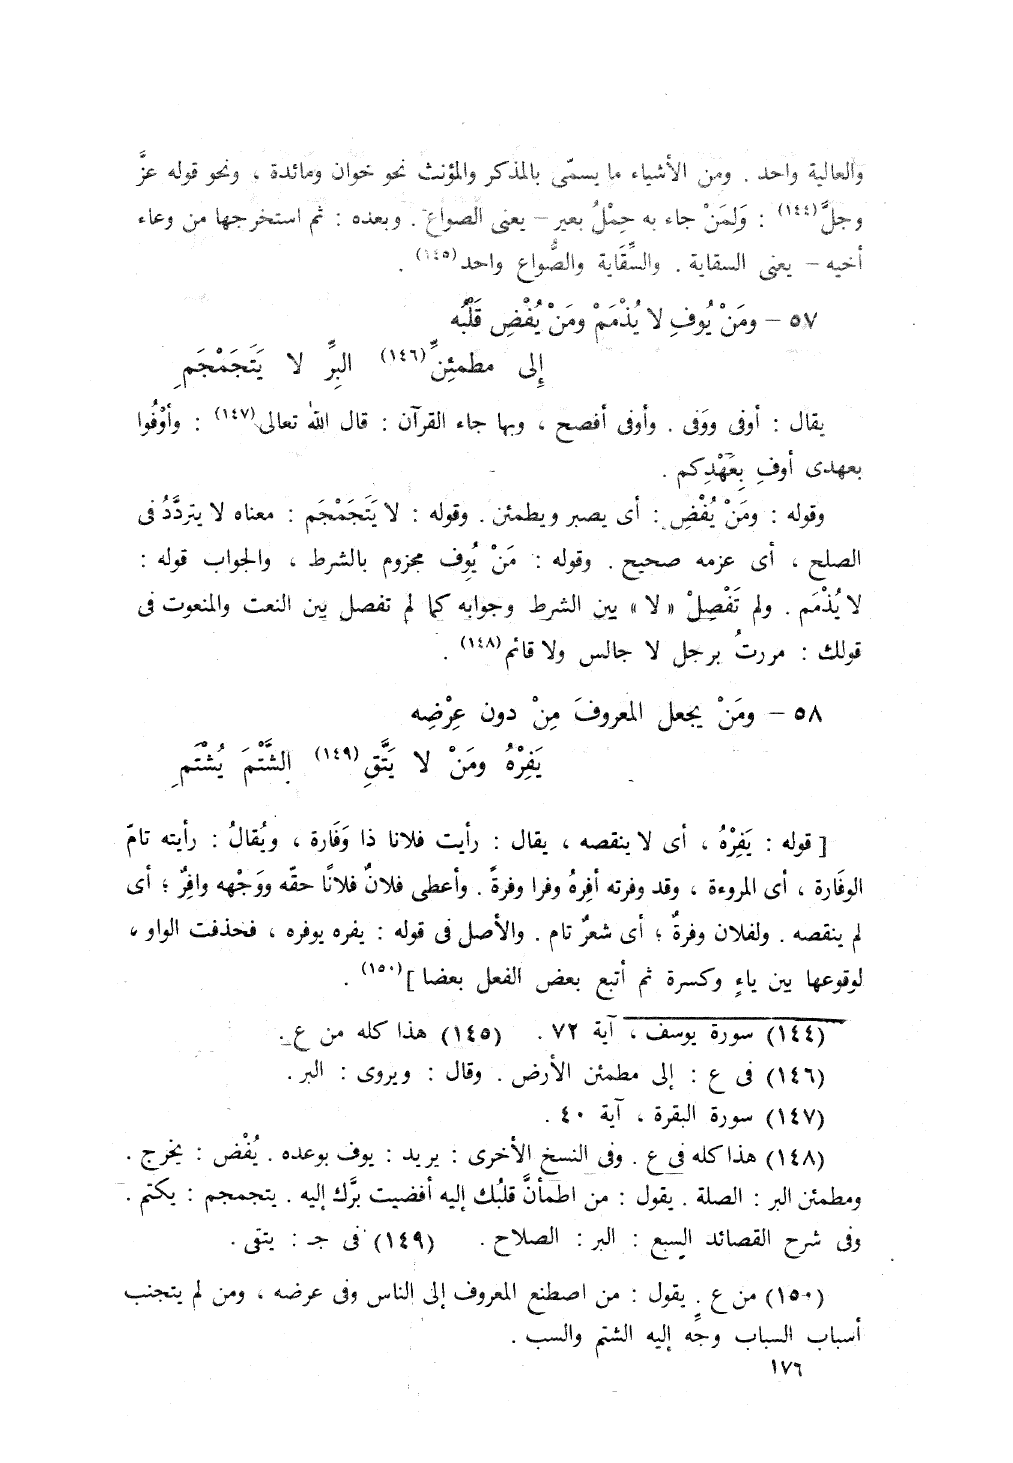 والعالية واحد . ومن الأشياء ما يسمّى بالمذكر والمؤنث نحو خوان ومائدة ، ونحو قوله عزَّ
وجلَّ(١٤٤) : وَلِمَنْ جاء به حِمْلُ بعير – يعنى الصواع . وبعده : ثم استخرجها من وعاء
أخيه – يعنى السقاية . والسِّقَاية والصُّواع واحد(١٤٥) .
٥٧ – ومَنْ يُوفِ لا يُذْمَمْ ومَنْ يُفْضِ قَلْبُه
إِلى مطمئِنِّ(١٤٦) البِرِّ لا يَتَجَمْجَمِ
يقال : أوفى ووَفى . وأوفى أفصح ، وبها جاء القرآن : قال الله تعالى(١٤٧) : وأوْفُوا
بعهدى أوفِ بِعَهْدِكم .
وقوله : ومَنْ يُفْضِ : أى يصبر ويطمئن . وقوله : لا يَتَجَمْجَم : معناه لا يتردَّدُ فى
الصلح ، أى عزمه صحيح . وقوله : مَنْ يُوف مجزوم بالشرط ، والجواب قوله :
لا يُذْمَم . ولم تَفْصِلْ « لا » بين الشرط وجوابه كما لم تفصل بين النعت والمنعوت فى
قولك : مررتُ برجل لا جالس ولا قائم(١٤٨) .
٥٨ – ومَنْ يجعل المعروفَ مِنْ دون عِرْضِه
يَفِرْهُ ومَنْ لا يَتَّقِ(١٤٩) الشَّتْمَ يُشْتَمِ
[ قوله : يَفِرْهُ ، أى لا ينقصه ، يقال : رأيت فلانا ذا وَفَارة ، ويُقالُ : رأيته تامّ
الوفَارة ، أى المروءة ، وقد وفرته أفِرهُ وفرا وفرةً . وأعطى فلانٌ فلانًا حقّه ووَجْهه وافِرٌ ؛ أى
لم ينقصه . ولفلان وفرةٌ ؛ أى شعرٌ تام . والأصل فى قوله : يفره يوفره ، فحذفت الواو ،
لوقوعها بين ياءٍ وكسرة ثم أتبع بعض الفعل بعضا ](١٥٠) .
(١٤٤) سورة يوسف ، آية ٧٢ . (١٤٥) هذا كله من ع .
(١٤٦) فى ع : إلى مطمئن الأرض . وقال : ويروى : البر .
(١٤٧) سورة البقرة ، آية ٤٠ .
(١٤٨) هذا كله فى ع . وفى النسخ الأخرى : يريد : يوف بوعده . يُفْض : يخرج .
ومطمئن البر : الصلة . يقول : من اطمأنَّ قلبُك إليه أفضيت برَّك إليه . يتجمجم : يكتم .
وفى شرح القصائد السبع : البر : الصلاح . (١٤٩) فى جـ : يتقى .
(١٥٠) من ع . يقول : من اصطنع المعروف إلى الناس وفى عرضه ، ومن لم يتجنب
أسباب السباب وجه إليه الشتم والسب .
١٧٦